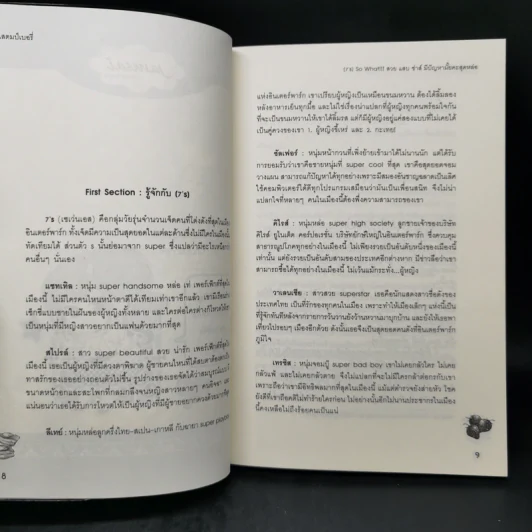 สตมป์เบอรี่
First Section : รู้จักกับ (7's)
7's (เซเว่นเอส) คือกลุ่มวัยรุ่นจำนวนเจ็ดคนที่โด่งดังที่สุดในเมือง
อินเตอร์พาร์ก ทั้งเจ็ดมีความเป็นสุดยอดในแต่ละด้านซึ่งไม่มีใครในเมืองนี้
ทัดเทียมได้ ส่วนตัว s นั้นย่อมาจาก super ซึ่งแปลว่ามีอะไรเหนือกว่า
คนอื่นๆ นั่นเอง
แซทเทิล : หนุ่ม super handsome หล่อ เท่ เพอร์เฟ็กท์ที่สุดใน
เมืองนี้ ไม่มีใครคนไหนหน้าตาดีได้เทียมเท่าเขาอีกแล้ว เขามีเรือนร่าง
เซ็กซี่แบบชายในฝันของผู้หญิงทั้งหลาย และใครต่อใครต่างก็โหวตให้เขา
เป็นหนุ่มที่มีหญิงสาวอยากเป็นแฟนด้วยมากที่สุด
สไปรส์ : สาว super beautiful สวย น่ารัก เพอร์เฟ็กท์ที่สุดใน
เมืองนี้ เธอเป็นผู้หญิงที่มีดวงตาพิฆาต ผู้ชายคนไหนที่ได้สบตาต้องตกเป็น
ทาสรักของเธออย่างถอนตัวไม่ขึ้น รูปร่างของเธอจัดได้ว่าสมบูรณ์แบบ
ขนาดหน้าอกและสะโพกที่กลมกลึงจนหญิงสาวหลายๆ คนอิจฉา และ
แน่นอนว่าเธอได้รับการโหวตให้เป็นผู้หญิงที่มีผู้ชายอยากควงด้วยมากที่สุด
ดีเทย์ : หนุ่มหล่อลูกครึ่งไทย-สเปน-เกาหลี กับฉายา super playboy
8
(7's) So What!! สวย แสบ ซ่าส์ มีปัญหามั้ยคะสุดหล่อ
แห่งอินเตอร์พาร์ก เขาเปรียบผู้หญิงเป็นเหมือนขนมหวาน ต้องได้ลิ้มลอง
หลังอาหารเย็นทุกมื้อ และไม่ใช่เรื่องน่าแปลกที่ผู้หญิงทุกคนพร้อมใจกัน
ที่จะเป็นขนมหวานให้เขาได้ลิ้มรส แต่ก็มีผู้หญิงอยู่แค่สองแบบที่ไม่เคยได้
เป็นคู่ควงของเขา 1. ผู้หญิงขี้เหร่ และ 2. กะเทย!
ซัลเฟอร์ : หนุ่มหน้ากวนที่เพิ่งย้ายเข้ามาได้ไม่นานนัก แต่ได้รับ
การยอมรับว่าเขาคือชายหนุ่มที่ super cool ที่สุด เขาคือสุดยอดจอม
วางแผน สามารถแก้ไขปัญหาได้ทุกอย่าง เพราะมีสมองอันชาญฉลาดเป็นเลิศ
ใช้คอมพิวเตอร์ได้ดีทุกโปรแกรมเสมือนว่ามันเป็นเพื่อนสนิท จึงไม่น่า
แปลกใจที่หลายๆ คนในเมืองนี้ต้องพึ่งความสามารถของเขา
คิไรส์ : หนุ่มหล่อ super high society ลูกชายเจ้าของบริษัท
คิไรส์ ยูไนเต็ด คอร์ปอเรชั่น บริษัทยักษ์ใหญ่ในอินเตอร์พาร์ก ซึ่งควบคุม
สาธารณูปโภคทุกอย่างในเมืองนี้ ไม่เพียงรวยเป็นอันดับหนึ่งของเมืองนี้
เท่านั้น แต่ยังรวยเป็นอันดับสามของประเทศอีกต่างหาก มีข่าวลือว่าเขา
สามารถซื้อได้ทุกอย่างในเมืองนี้ ไม่เว้นแม้กระทั่ง...ผู้หญิง
วาเลนเซีย : สาวสวย superstar เธอคือนักแสดงสาวชื่อดังของ
ประเทศไทย เป็นที่รักของทุกคนในเมือง เพราะทำให้เมืองเล็กๆ แห่งนี้เป็น
ที่รู้จักทันทีหลังจากรายการวันวานยังหวานมาบุกบ้าน และยังให้เธอพา
เที่ยวไปรอบๆ เมืองอีกด้วย ดังนั้นเธอจึงเป็นสุดยอดคนดังที่อินเตอร์พาร์ก
ภูมิใจ
เทรซิส : หนุ่มจอมบู๊ super bad boy เขาไม่เคยกลัวใคร ไม่เคย
กลัวแพ้ และไม่เคยกลัวตาย จึงไม่แปลกที่จะไม่มีใครกล้าต่อกรกับเขา
เพราะถือว่าเขามีอิทธิพลมากที่สุดในเมืองนี้ แม้แต่ตำรวจยังส่ายหัว โชค
ยังดีที่เขาถือคติไม่ทำร้ายใครก่อน ไม่อย่างนั้นอีกไม่นานประชากรในเมืองนี้
คงเหลือไม่ถึงร้อยคนเป็นแน่
9